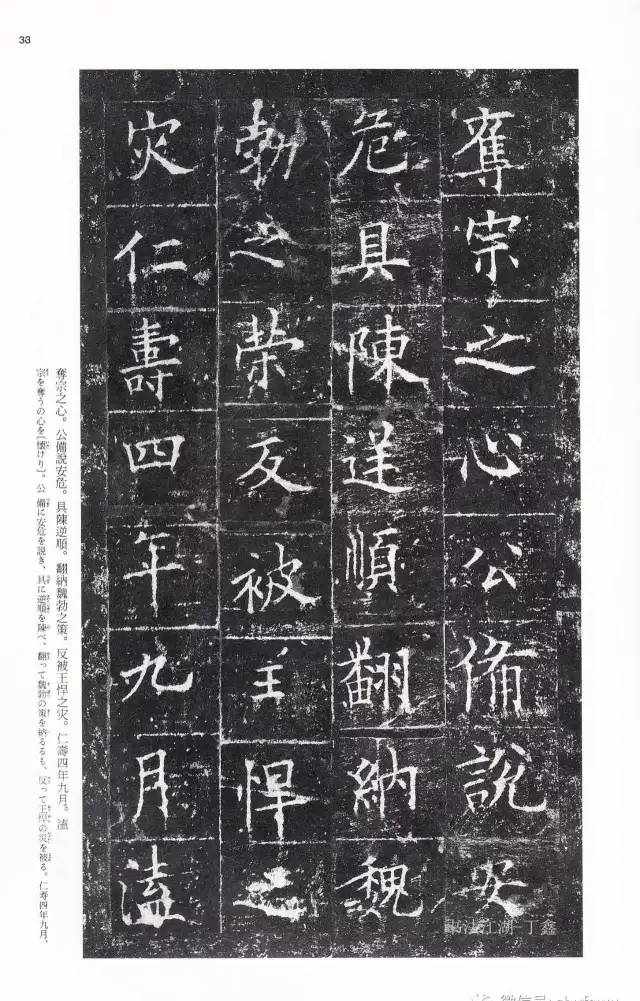 33
奪宗之心公備說安
危具陳逆順翻納魏
勃之策反被王悍之
灾仁壽四年九月溘
奪宗之心。公備説安危。具陳逆順。翻納魏勃之策。反被王悍之灾。仁壽四年九月。溘
宗を奪うの心を[懐けり]。公 備に安危を説き、具に逆順を陳べ、翻って魏勃の策を納るるも、反って王悍の災を被る。仁寿四年九月、
江湖 丁鑫